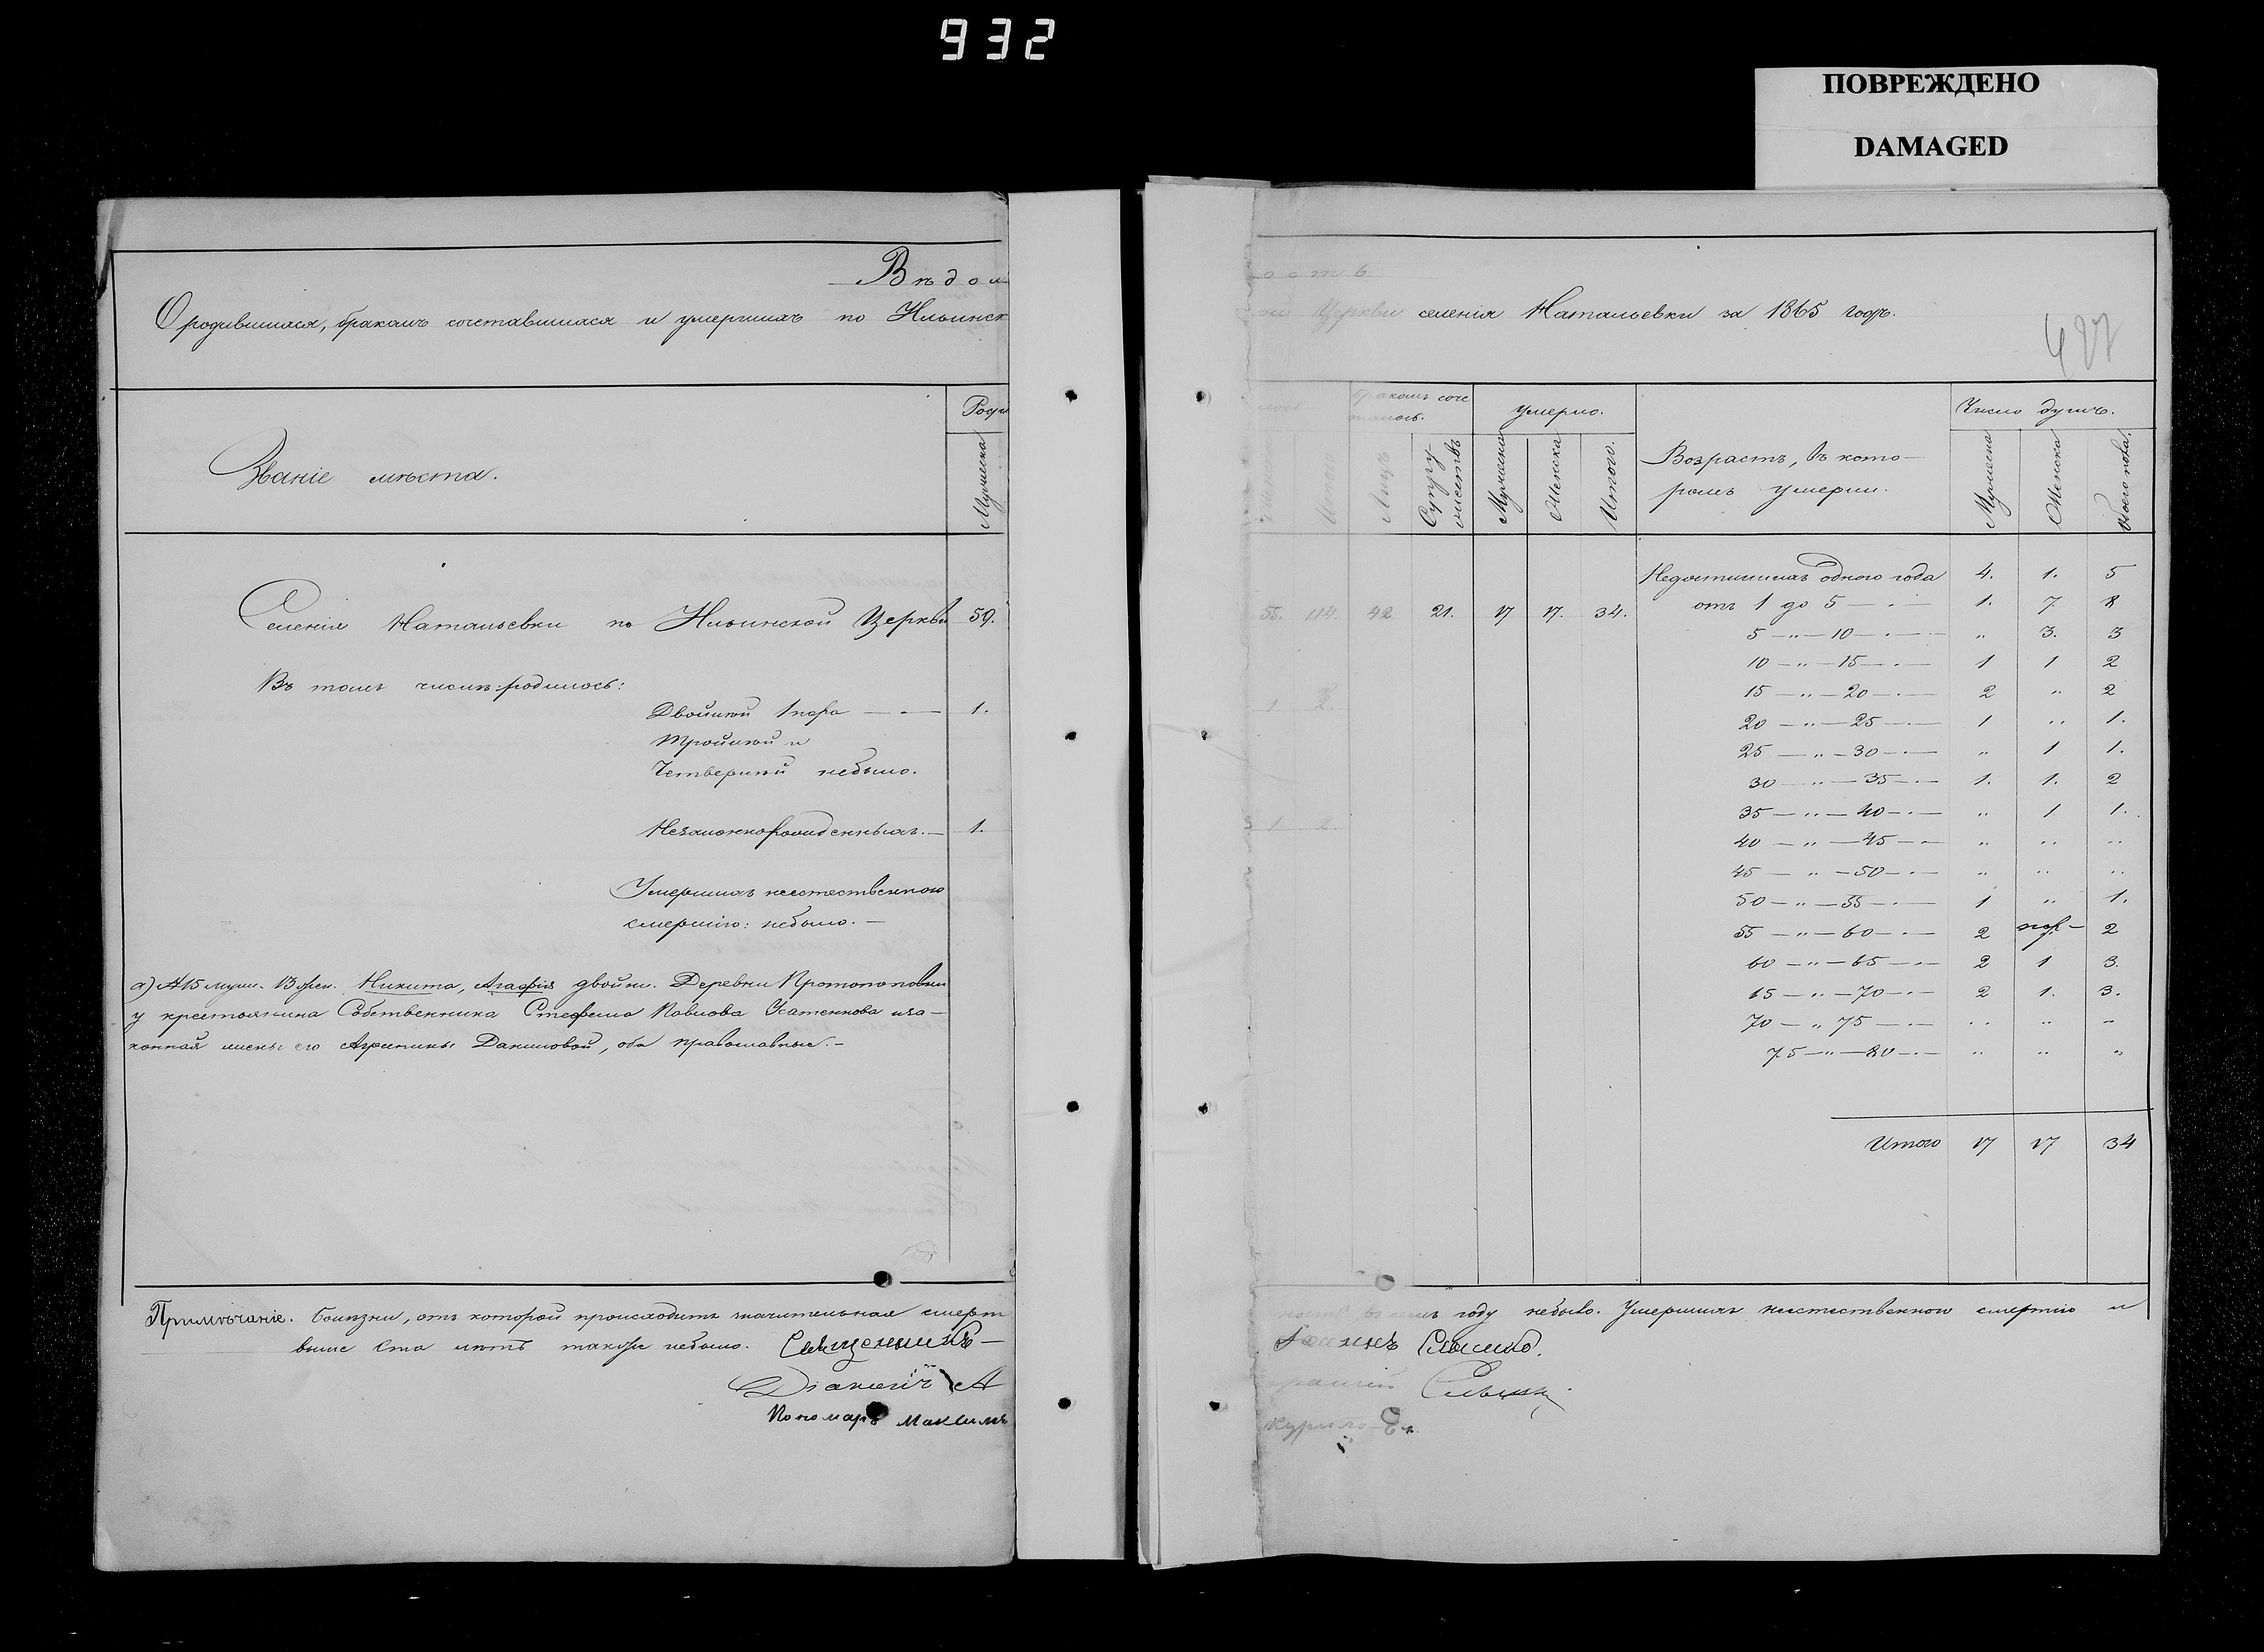 932
ПОВРЕЖДЕНО
DAMAGED
Вѣдом
О родившихся, бракамъ сочетавшихся и умершихъ по Ильинск
Званіе мѣста.
Роди
Мужеска
Селенія Натальевки по Ильинской Церкви 59.
Въ томъ числѣ: родилось:
Двойней 1 пара — 1.
Тройней и
Четверней небыло.
Незаконнорожденныхъ. — 1.
Умершихъ неестественною
смертію: небыло. —
а) № 15 муж. 13 жен. Никита, Агафія двойни. Деревни Протопоповки
у крестьянина Собственника Стефана Павлова
жены его Агрипины Даниловой, оба православные. —
Примѣчаніе. Болѣзни, отъ которой происходитъ значительная смерт
выше ста лѣтъ также небыло. Священникъ —
Діаконъ А
Пономарь Максимъ
ость
ой Церкви селенія Натальевки за 1865 годъ.
427
лось
бракомъ соче
талось.
Умерло.
Число душъ.
Женска
Итого
Лицъ
Супру
жествъ
Мужеска
Женска
Итого.
Возрастъ, въ кото-
ромъ умерли.
Мужеска
Женска
Обоего пола.
Недостигшихъ одного года 4. 1. 5
55. 114. 42 21. 17 17. 34.
отъ 1 до 5 — 1. 7 8
5 — " — 10 — " 3. 3
10 — " — 15 — 1 1 2
15 — " — 20 — 2 " 2
1 2.
20 — " — 25 — 1 " 1.
25 — " — 30 — " 1 1.
30 — " — 35 — 1. 1. 2
35 — " — 40 — " 1 1.
1 2.
40 — " — 45 — " " "
45 — " — 50 — " " "
50 — " — 55 — 1 " 1.
55 — " — 60 — 2 2
60 — " — 65 — 2 1 3.
65 — " — 70 — 2 1. 3.
70 — " 75 — " " "
75 — " — 80 — " " "
Итого 17 17 34
ность въ семъ году небыло. Умершихъ неестественною смертію и
Іоаннъ
Курило